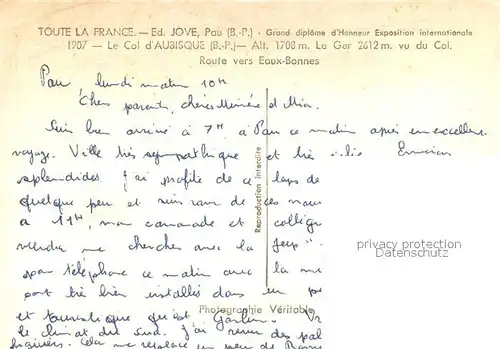 TOUTE LA FRANCE. — Ed. JOVE, Pau (B.-P.) - Grand diplôme d'Honneur Exposition internationale
1907 — Le Col d'AUBISQUE (B.-P.) — Alt. 1708 m. Le Ger 2612 m. vu du Col.
Route vers Eaux-Bonnes
Pau lundi matin 10H
Chers parents, chères Mémère et Mia.
Suis bien arrivé à 7H à Pau ce matin après un excellent
voyage. Ville très sympathique et très jolie Environs
splendides. J'ai profité de ce laps de
quelque peu et suis
à 11H, mon camarade et collègue
me chercher avec la "Jeep".
par téléphone ce matin avec la
sont très bien installés dans un
et touristique qu'est Garlin.
le climat du sud. J'ai revu des pal
Cela me un peu de
Reproduction interdite
Photographie Véritable
privacy protection
Datenschutz